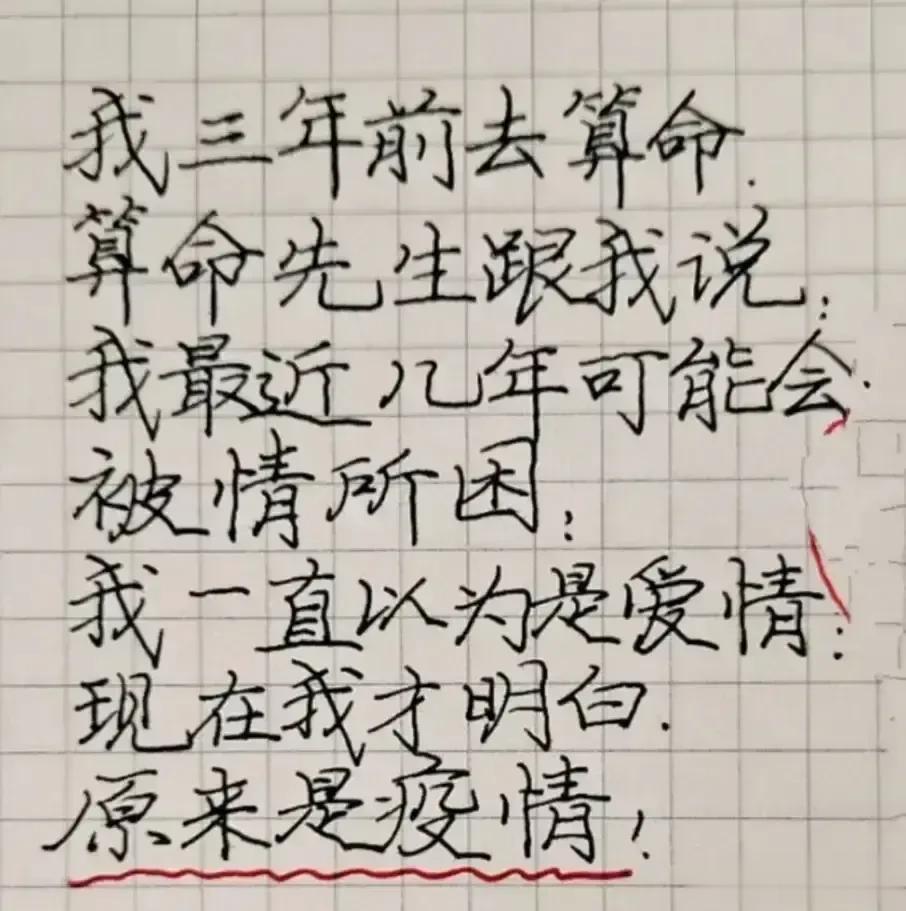 我三年前去算命.
算命先生跟我说:
我最近几年可能会.
被情所困;
我一直以为是爱情:
现在我才明白.
原来是疫情!